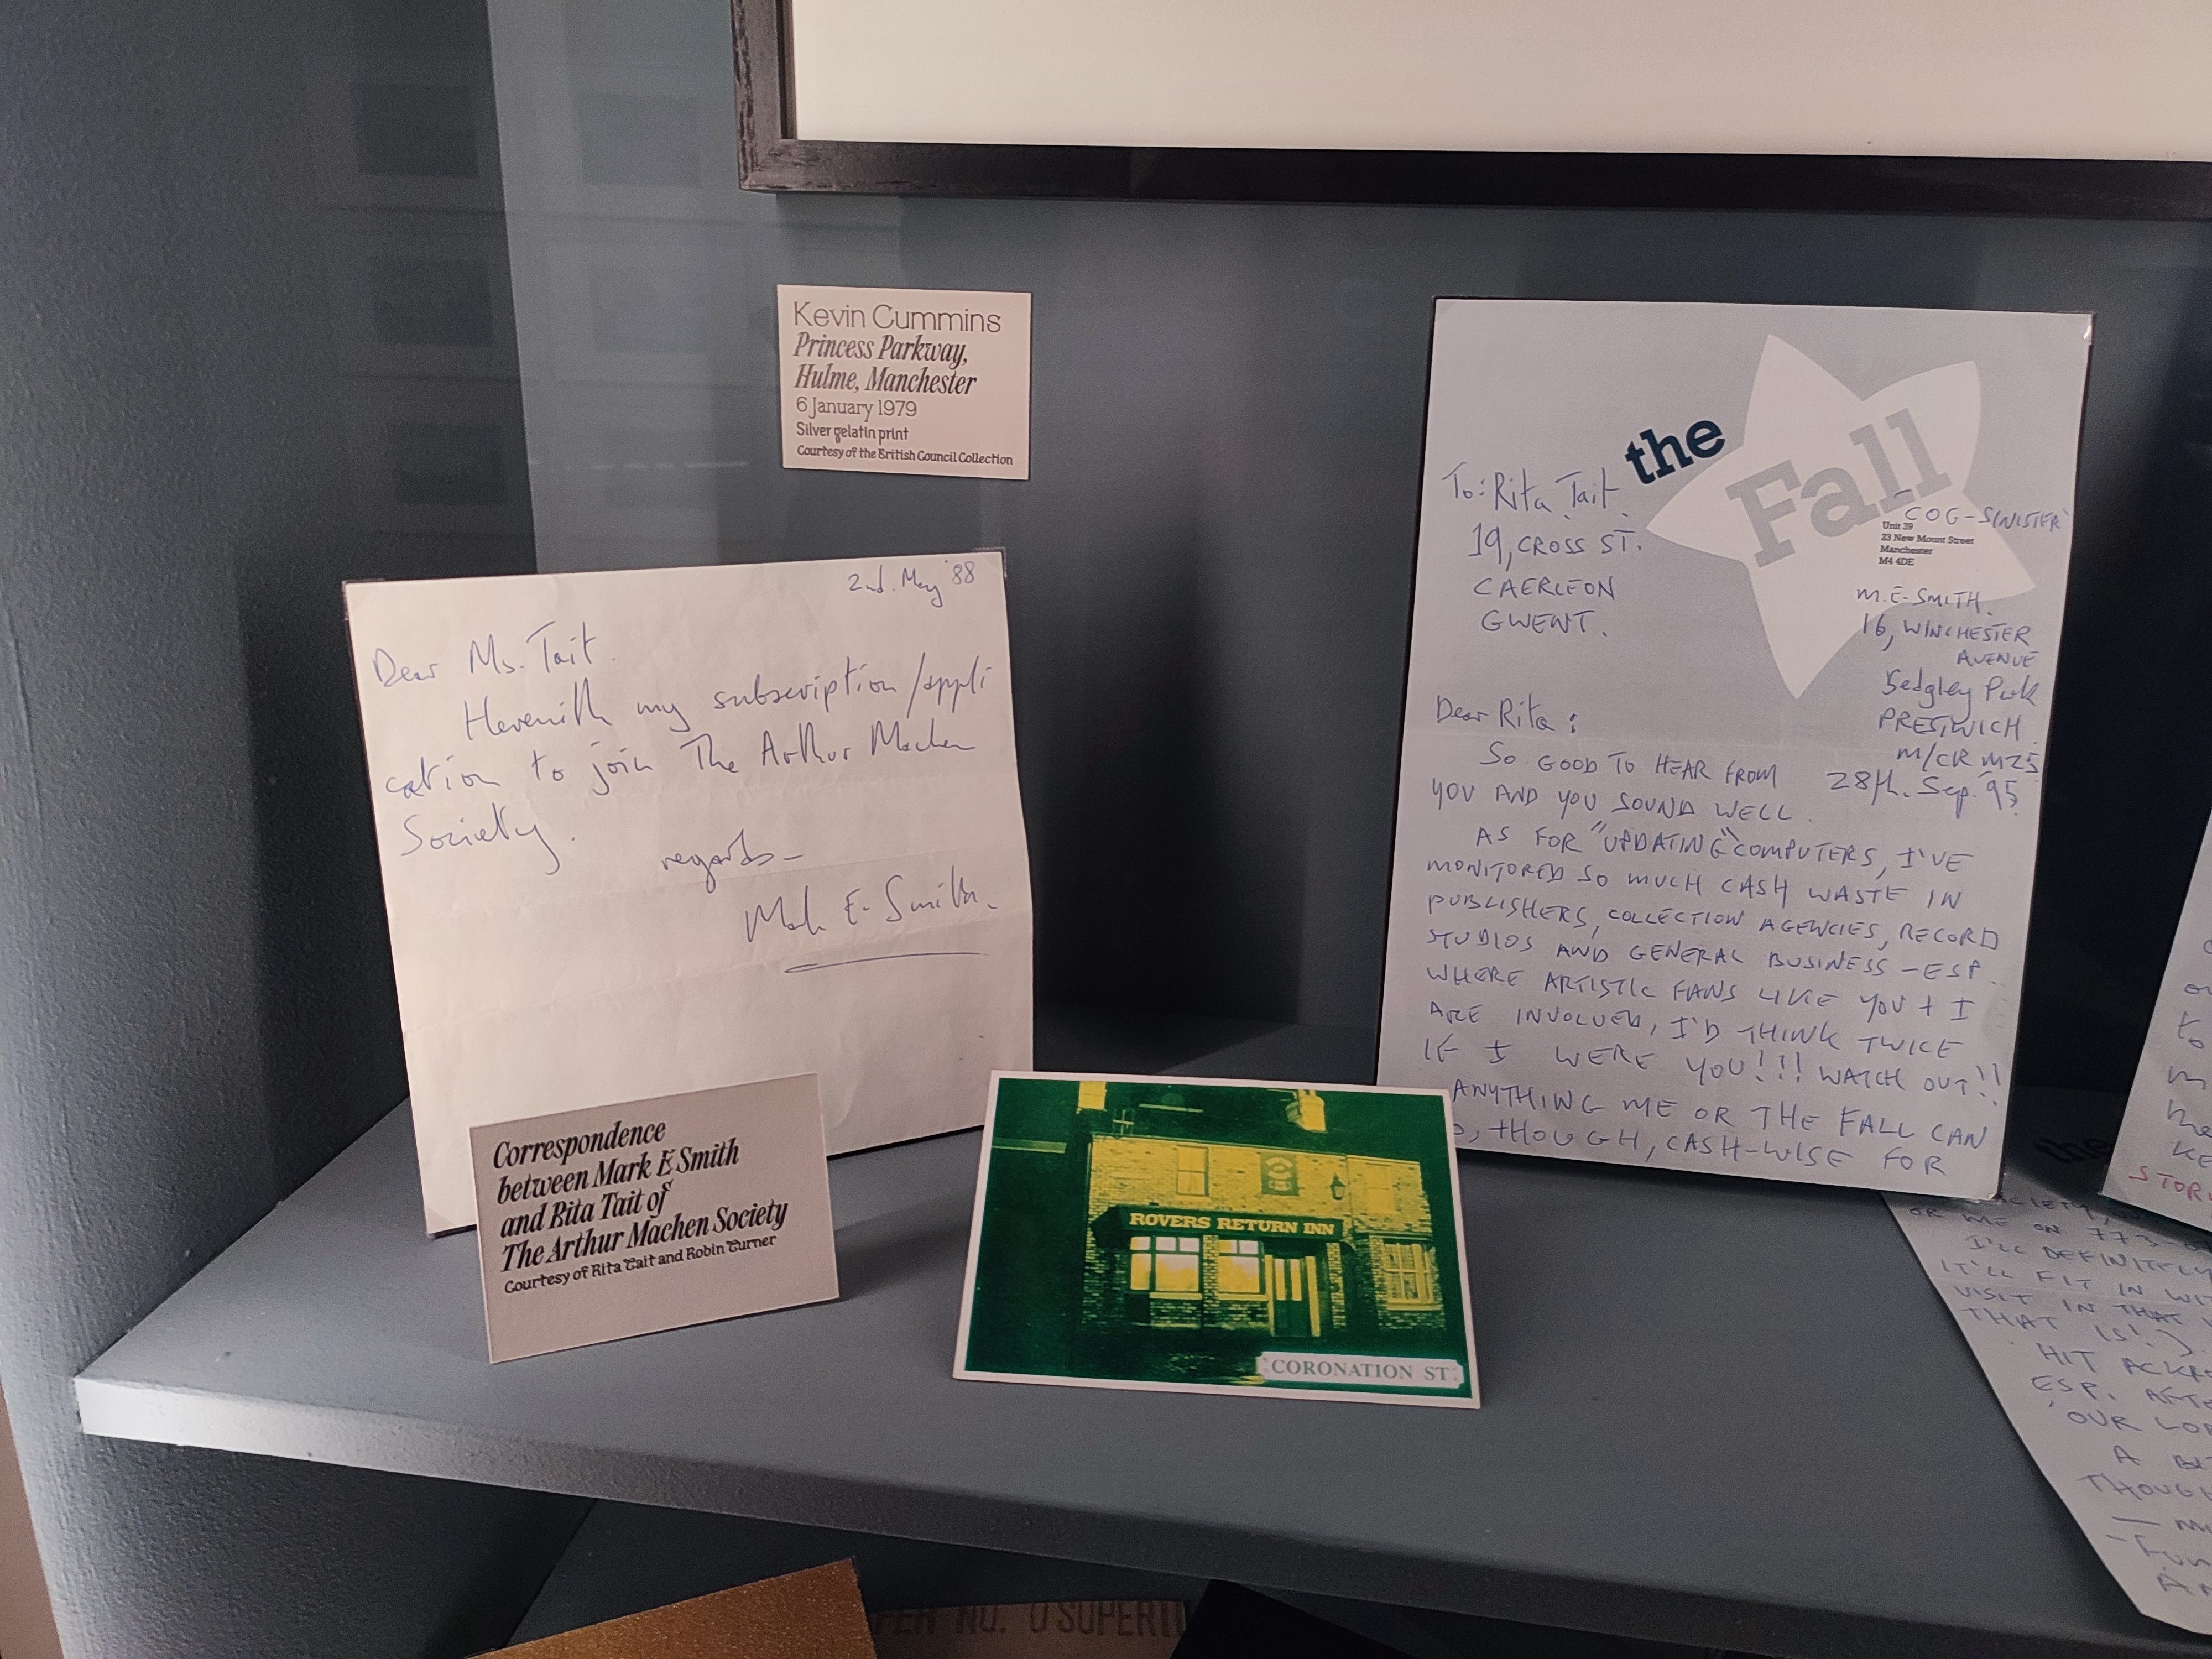 Kevin Cummins
Princess Parkway,
Hulme, Manchester
6 January 1979
Silver gelatin print
Courtesy of the British Council Collection
2nd. May '88
Dear Ms. Tait.
Herewith my subscription/appli
cation to join The Arthur Machen
Society.
regards—
Mark E. Smith.
Correspondence
between Mark E Smith
and Rita Tait of
The Arthur Machen Society
Courtesy of Rita Tait and Robin Turner
ROVERS RETURN INN
CORONATION ST.
the
Fall
COG-SINISTER
Unit 39
23 New Mount Street
Manchester
M4 4DE
To: Rita Tait.
19, CROSS ST.
CAERLEON
GWENT.
M.E-SMITH.
16, WINCHESTER
AVENUE
Sedgley Park
PRESTWICH.
M/CR M25
28th. Sep. 95
Dear Rita:
SO GOOD TO HEAR FROM
YOU AND YOU SOUND WELL.
AS FOR "UPDATING" COMPUTERS, I'VE
MONITORED SO MUCH CASH WASTE IN
PUBLISHERS, COLLECTION AGENCIES, RECORD
STUDIOS AND GENERAL BUSINESS – ESP.
WHERE ARTISTIC FANS LIKE YOU + I
ARE INVOLVED, I'D THINK TWICE
IF I WERE YOU!!! WATCH OUT!!
ANYTHING ME OR THE FALL CAN
THOUGH, CASH-WISE FOR
to
the
OR ME ON 773
I'LL DEFINITELY
IT'LL FIT IN
VISIT IN THAT
THAT IS!).
HIT
ESP.
'OUR
A
NO. 0 SUPER